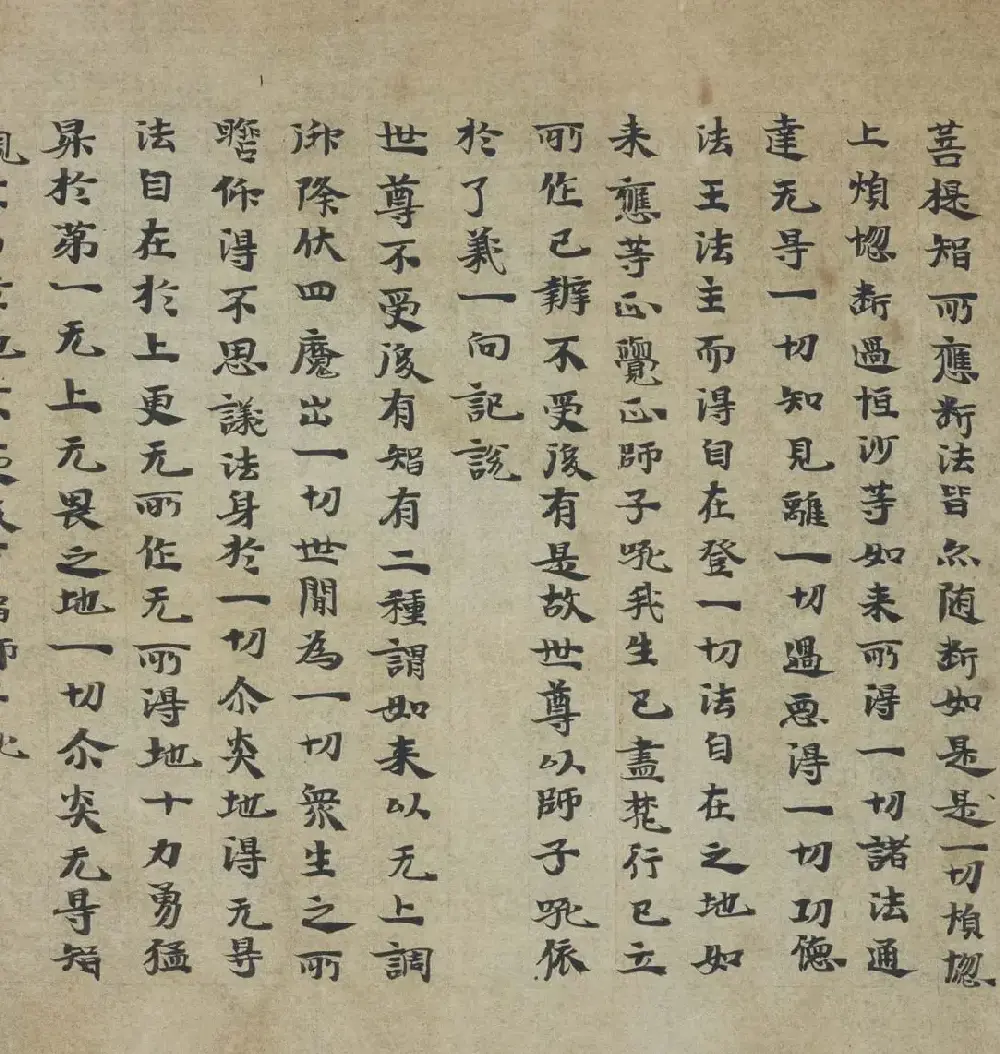 菩提智所應斷法皆亦随斷如是是一切煩惱
上煩惱斷過恒沙等如来所得一切諸法通
達无㝵一切知見離一切過惡得一切功德
法王法主而得自在登一切法自在之地如
来應等正覺正師子吼我生已盡梵行已立
所作已辦不受後有是故世尊以師子吼依
於了義一向記說
世尊不受後有智有二種謂如来以无上調
御降伏四魔出一切世間為一切衆生之所
瞻仰得不思議法身於一切尒炎地得无㝵
法自在於上更无所作无所得地十力勇猛
昇於第一无上无畏之地一切尒炎无㝵智